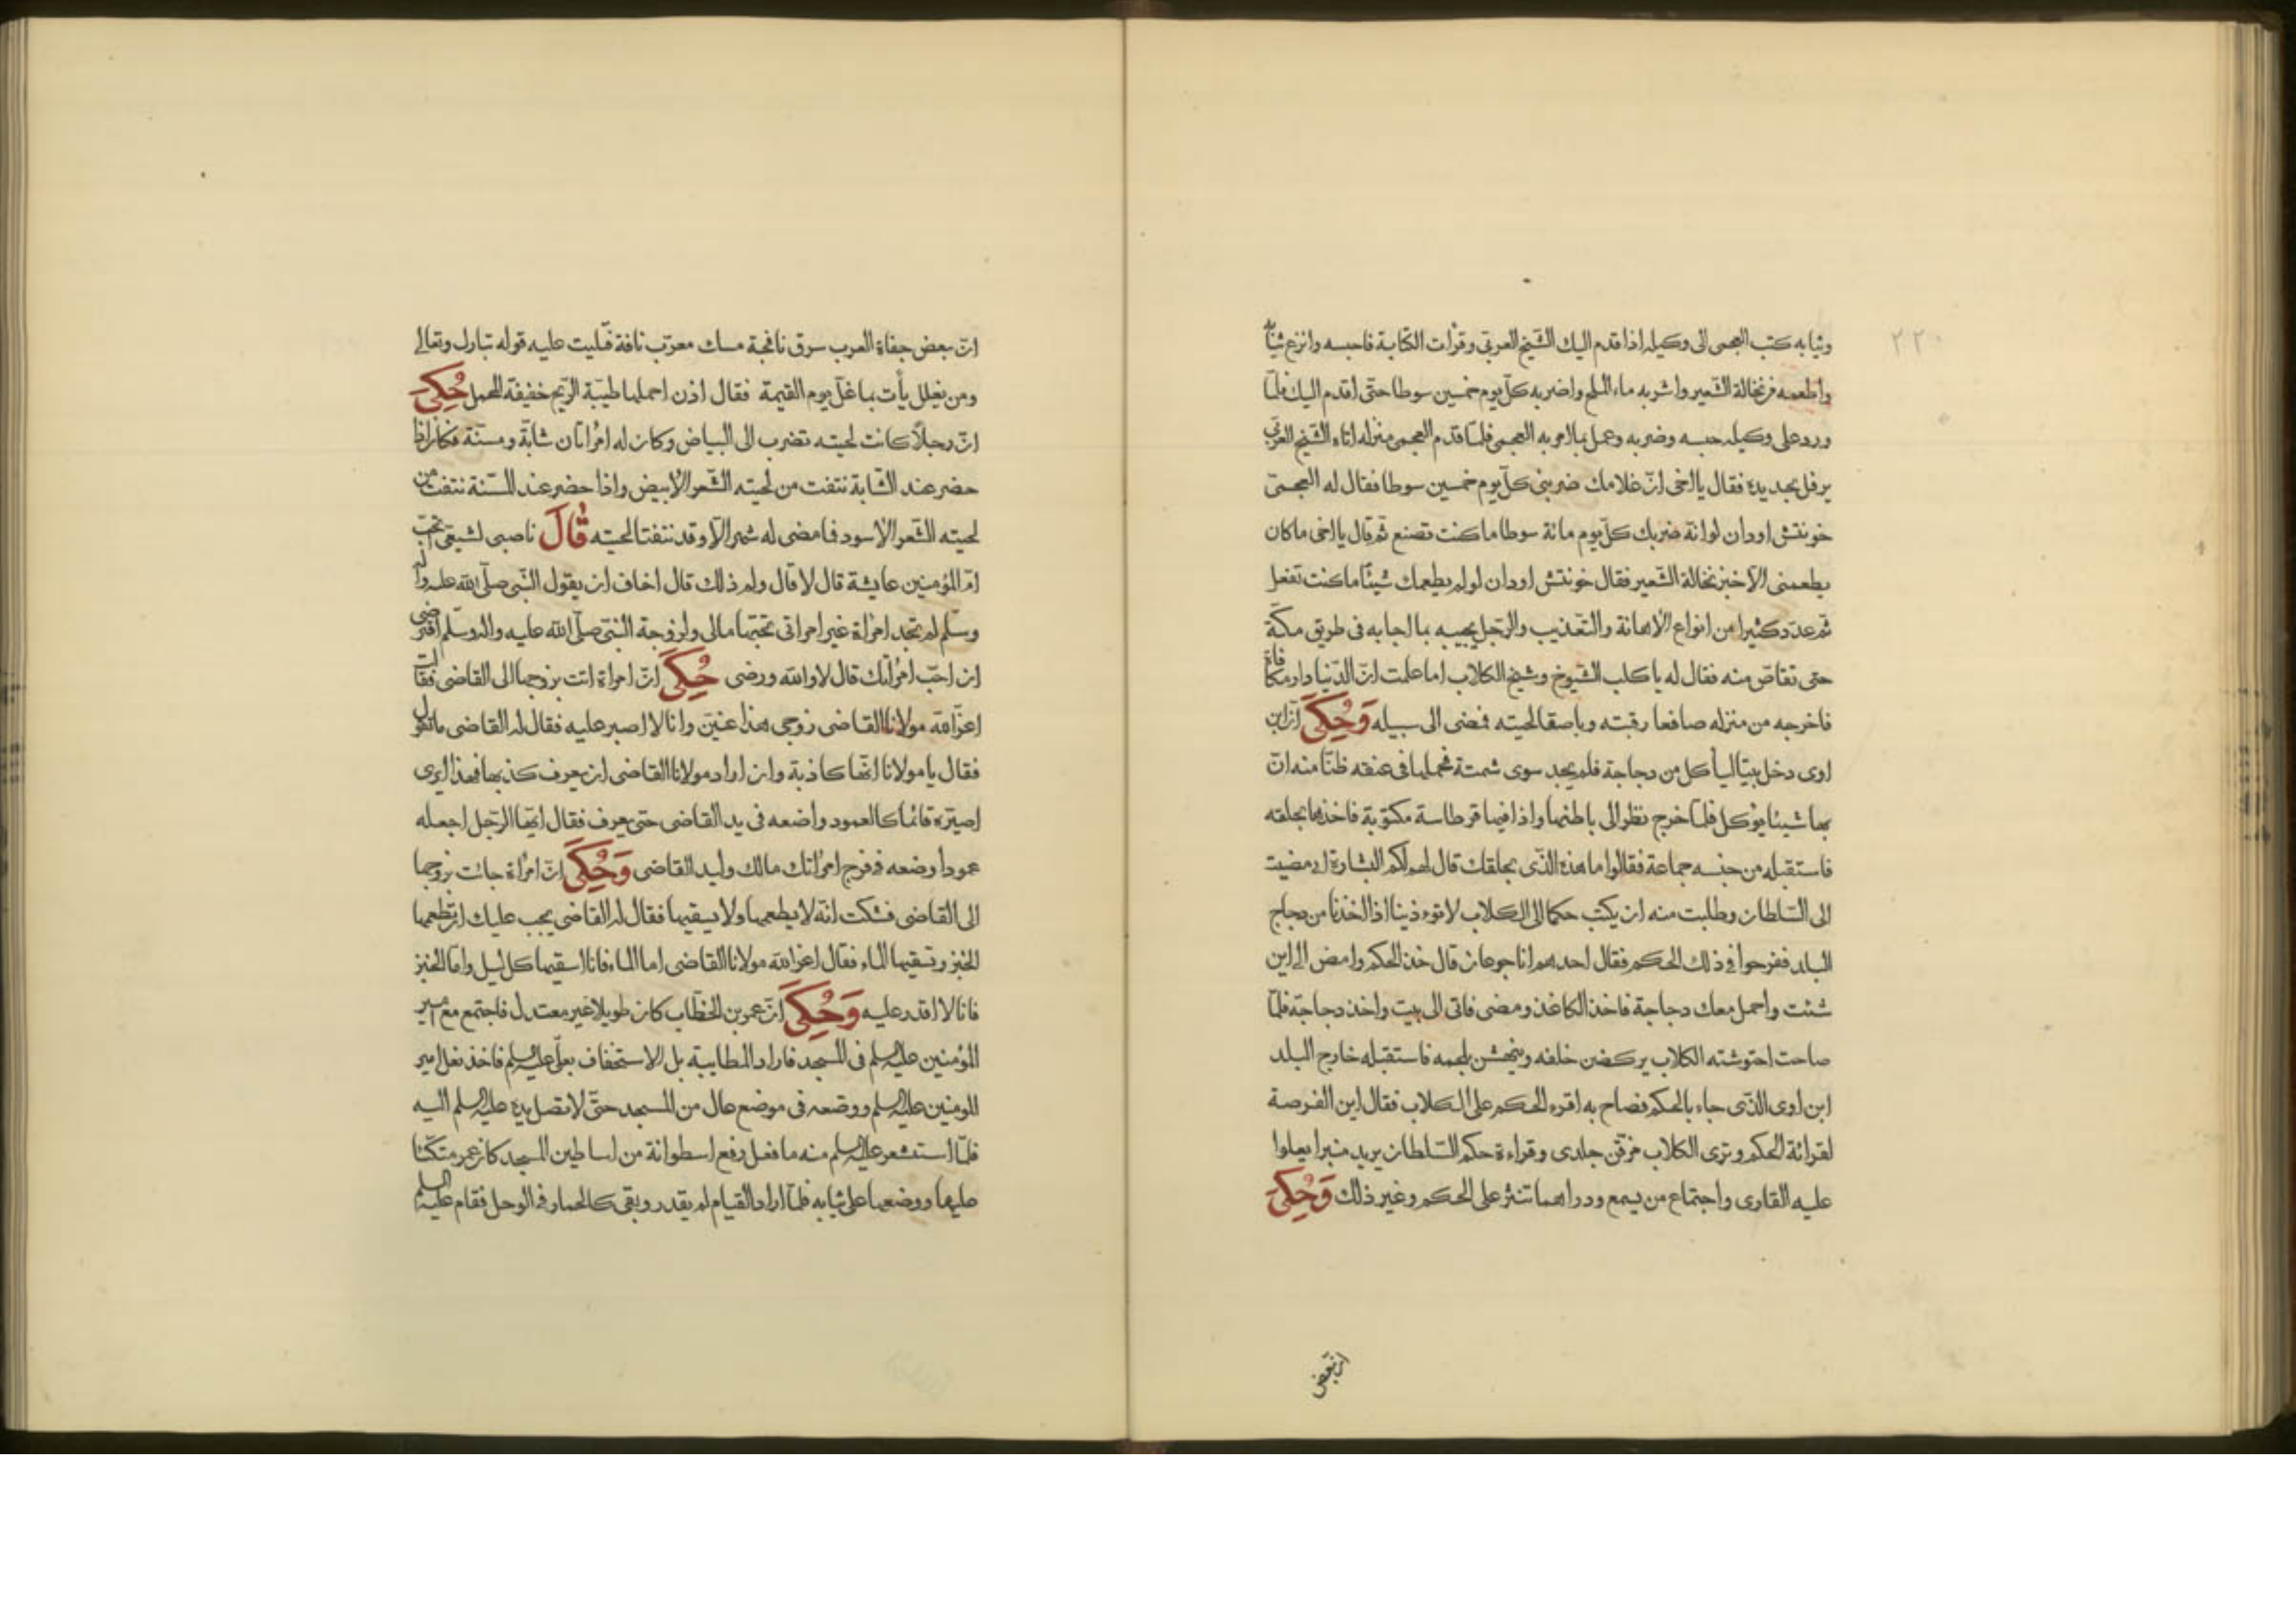 ٢٢٠
وثيابه كتب العجمى الى وكيله اذا قدم اليك الشيخ العربى وقرأت الكتابة فاحبسه وانزع ثيابه
واطعمه من نخالة الشعير واشربه ماء الملح واضربه كل يوم خمسين سوطا حتى اقدم اليك فلما
ورد على وكيله حبسه وضربه وعمل بما امر به العجمى فلما قدم العجمى منزله اتاه الشيخ العربى
يرفل بحديده فقال يا اخى ان غلامك ضربنى كل يوم خمسين سوطا فقال له العجمى
خونتش اودان لو انه ضربك كل يوم مائة سوطا ما كنت تصنع ثم قال يا اخى ما كان
يطعمنى الا خبز نخالة الشعير فقال خونتش اودان لو لم يطعمك شيئا ما كنت تفعل
ثم عدد كثيرا من انواع الاهانة والتعذيب والرجل يجيبه بما اجابه فى طريق مكة
حتى تقاص منه فقال له يا كلب الشيوخ وشيخ الكلاب اما علمت ان الدنيا دار مكافاة
فاخرجه من منزله صافعا رقبته وباصقا لحيته فمضى الى سبيله وَحُكِىَ ان ابن
اوى دخل بيتا ليأكل من دجاجة فلم يجد سوى شمتة فحملها فى عنقه ظنا منه ان
بها شيئا يؤكل فلما خرج نظر الى باطنها واذا فيها قرطاسة مكتوبة فاخذها بحلقه
فاستقبله من جنسه جماعة فقالوا ما هذه الذى بحلقك قال لهم لكم البشارة انى مضيت
الى السلطان وطلبت منه ان يكتب حكما الى الكلاب لا تؤذينا اذا اخذنا من دجاج
البلد ففرحوا فى ذلك الحكم فقال احدهم انا جوعان قال خذ الحكم وامض الى اين
شئت واحمل معك دجاجة فاخذ الكاغذ ومضى فاتى الى بيت واخذ دجاجة فلما
صاحت احتوشته الكلاب يركضن خلفه وينهشن بلحمه فاستقبله خارج البلد
ابن اوى الذى جاء بالحكم فصاح به اقرء الحكم على الكلاب فقال اين الفرصة
لقرائة الحكم وترى الكلاب مزقن جلدى وقراءة حكم السلطان يريد منبرا يعلوا
عليه القارى واجتماع من يسمع ودراهما تنثر على الحكم وغير ذلك وَحُكِىَ
ان بعض
ان بعض جفاة العرب سرق نافجة مسك فتليت عليه قوله تبارك وتعالى
ومن يغلل يأت بما غل يوم القيمة فقال اذن احملها طيبة الريح خفيفة المحمل حُكِىَ
ان رجلا كانت لحيته تضرب الى البياض وكان له امرأتان شابة ومسنة فكان اذا
حضر عند الشابة نتفت من لحيته الشعر الابيض واذا حضر عند المسنة نتفت من
لحيته الشعر الاسود فما مضى له شهر الا وقد نتفتا لحيته قَالَ ناصبى لشيعى تحب
ام المؤمنين عايشة قال لا قال ولم ذلك قال اخاف ان يقول النبى صلى الله عليه واله
وسلم لم تجد امرأة غير امراتى تحبها مالى ولزوجة النبى صلى الله عليه واله وسلم افترضى
ان احب امرأتك قال لا والله ورضى حُكِىَ ان امراة اتت بزوجها الى القاضى فقالت
اعز الله مولانا القاضى زوجى هذا عنين وانا لا اصبر عليه فقال له القاضى ما تقول
فقال يا مولانا انها كاذبة وان اراد مولانا القاضى ان يعرف كذبها فهذا ايرى
اصيره قائما كالعمود واضعه فى يد القاضى حتى يعرف فقال ايها الرجل اجعله
عمودا وضعه فى فرج امرأتك مالك وليد القاضى وَحُكِىَ ان امرأة جائت بزوجها
الى القاضى فشكت انه لا يطعمها ولا يسقيها فقال له القاضى يجب عليك ان تطعمها
الخبز وتسقيها الماء فقال اعز الله مولانا القاضى اما الماء فانا اسقيها كل ليل واما الخبز
فانا لا اقدر عليه وَحُكِىَ ان عمر بن الخطاب كان طويلا غير معتدل فاجتمع مع امير
المؤمنين عليه السلم فى المسجد فاراد المطايبة بل الاستخفاف بعلى عليه السلم فاخذ نعل امير
المومنين عليه السلم ووضعه فى موضع عال من المسجد حتى لا تصل يده عليه السلم اليه
فلما استشعر عليه السلم منه ما فعل رفع اسطوانة من اساطين المسجد كان عمر متكئا
عليها ووضعها على ثيابه فلما اراد القيام لم يقدر وبقى كالحمار فى الوحل فقام عليه السلم